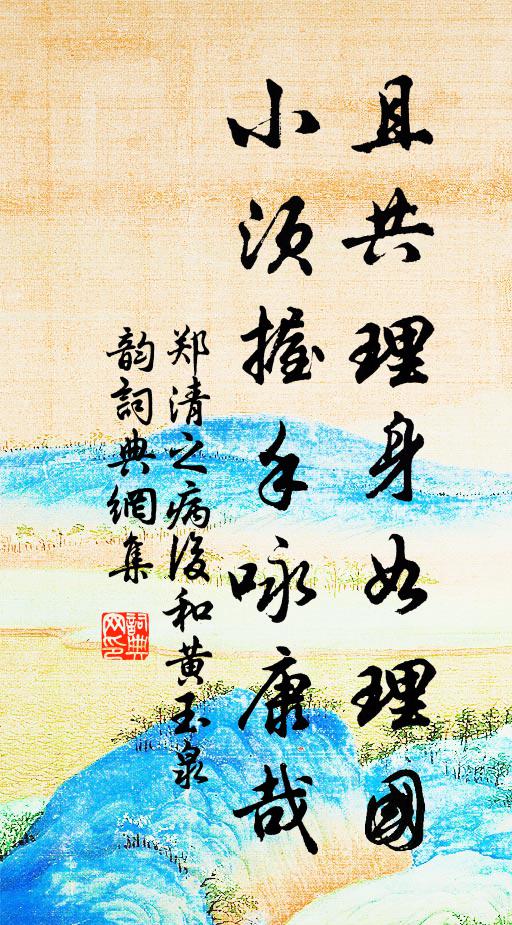 且共理身如理國
小須握手咏康哉
郑清之病後和黄玉泉
韵詞典網集
詞典
网印